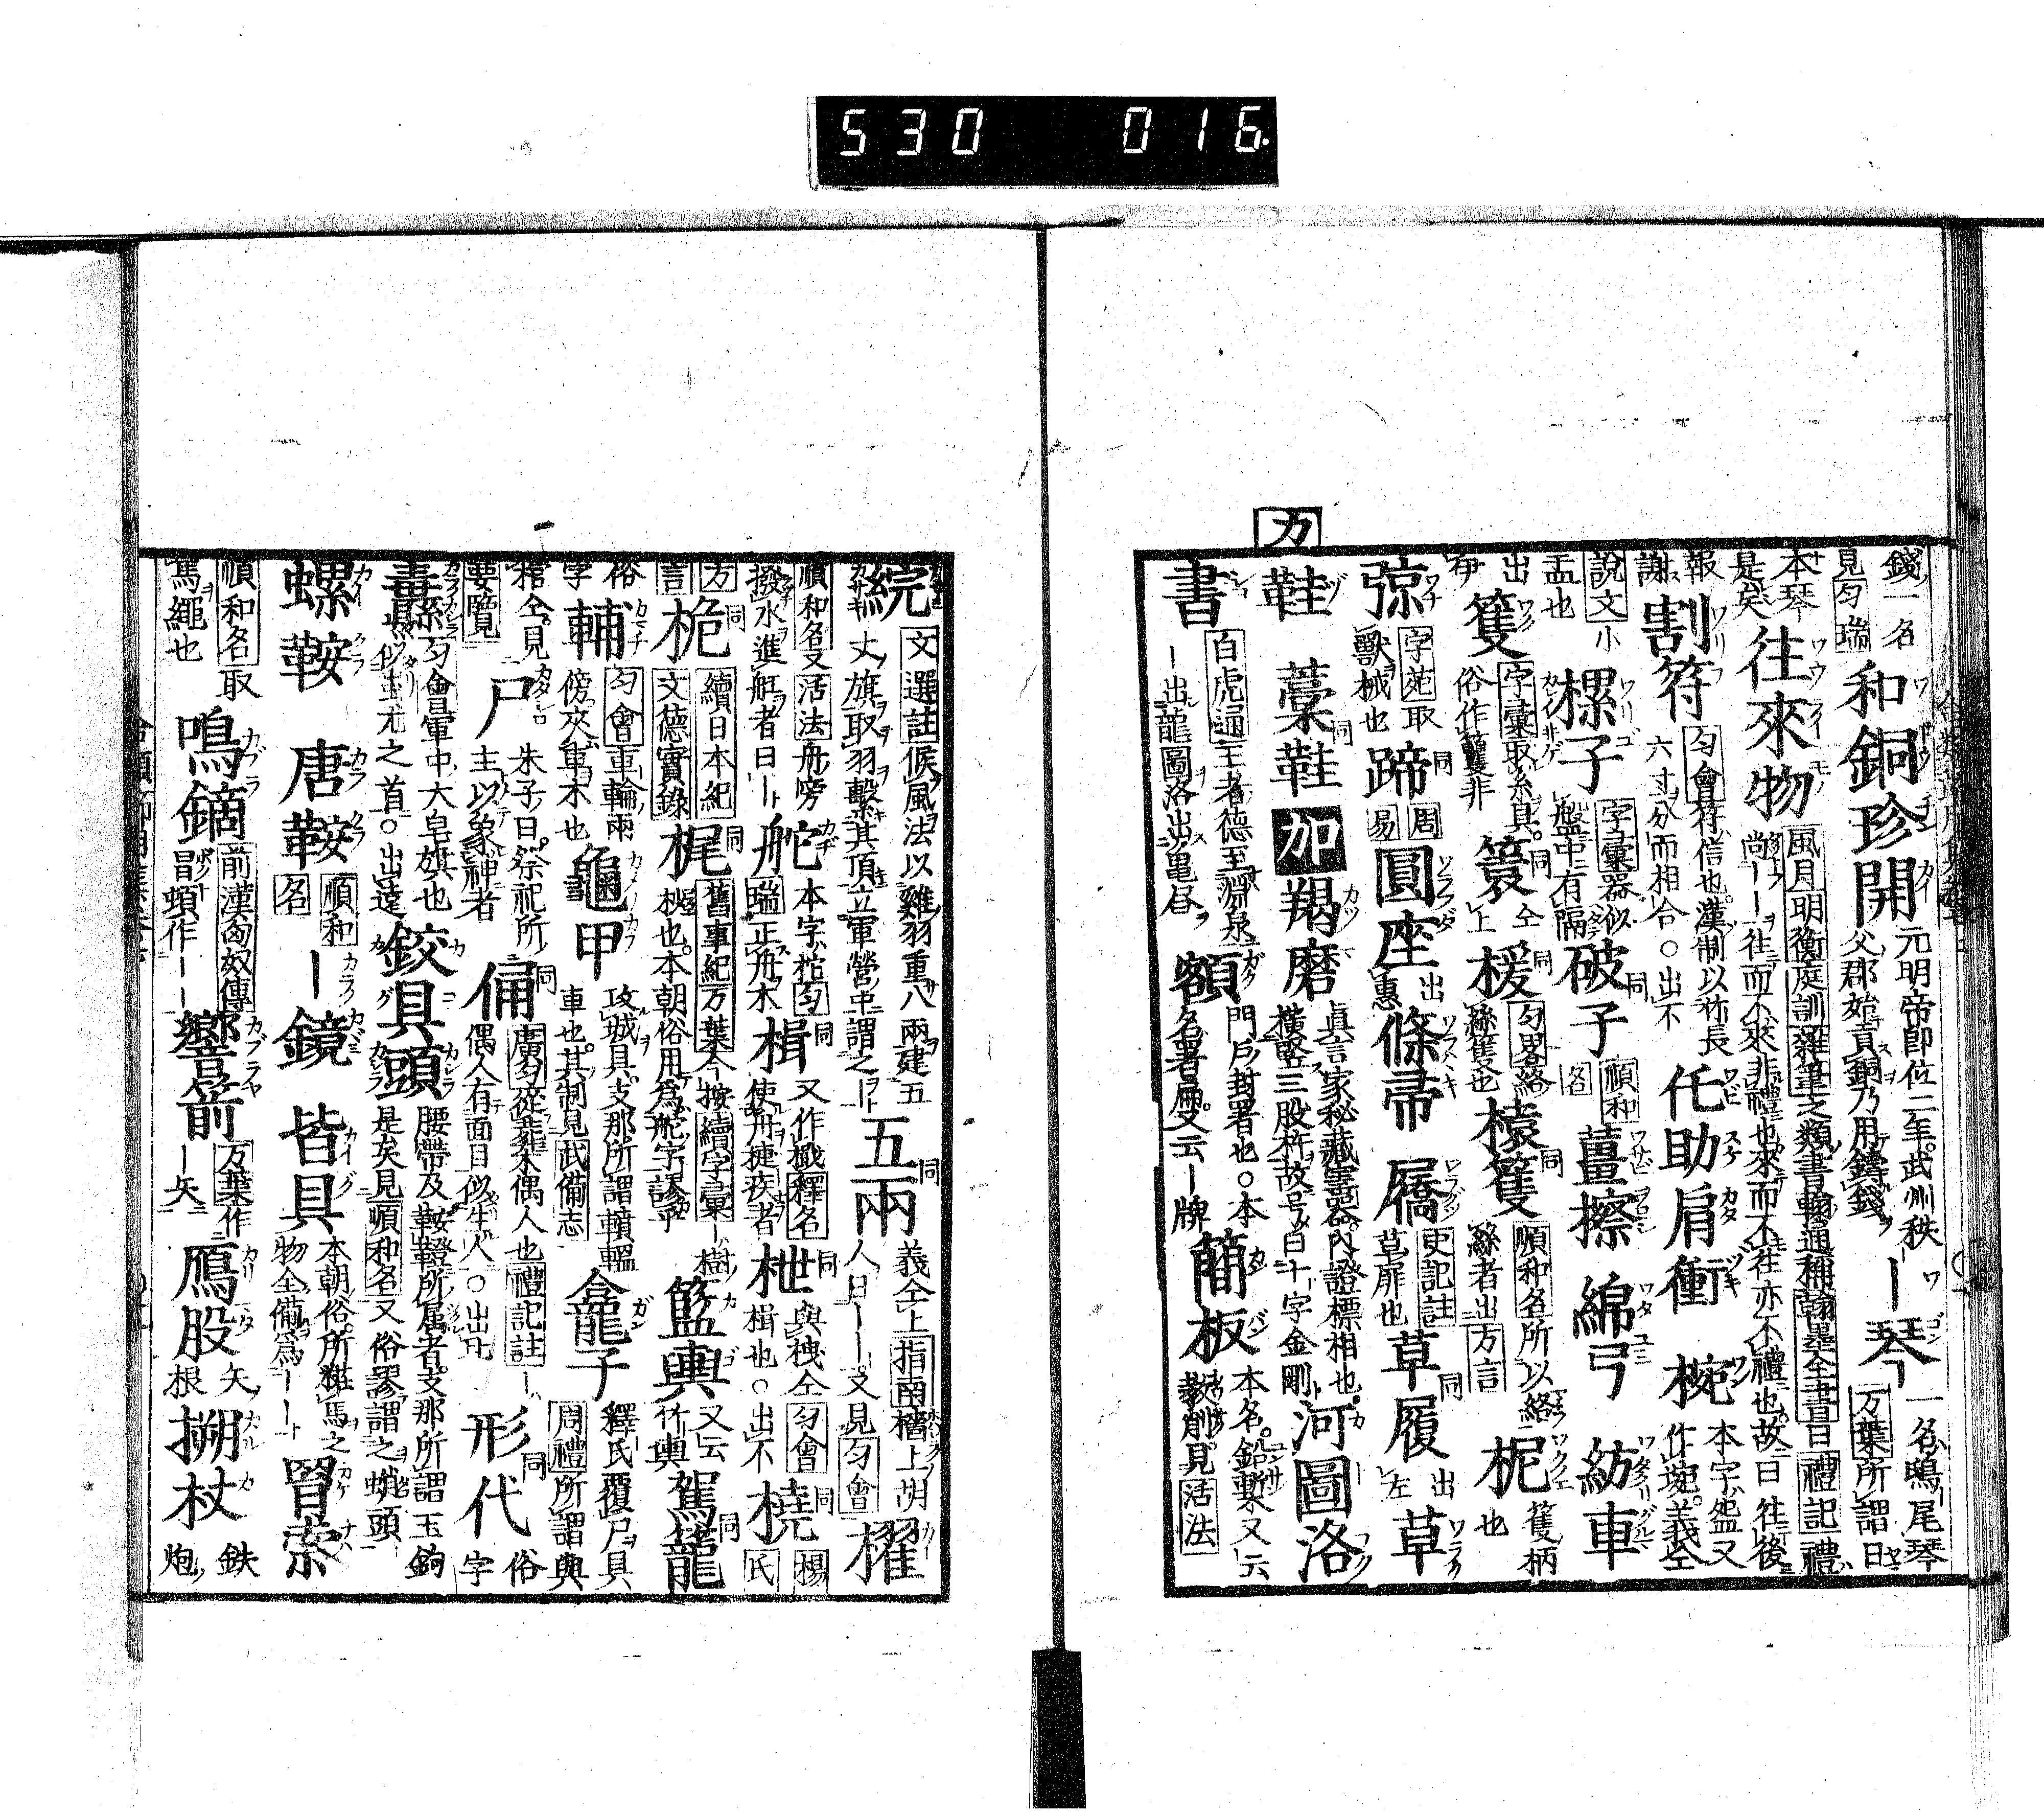 530 016.
カ
錢一名見匀瑞 和銅珍開 元明帝即位二年武州秩父郡始貢銅乃用鑄錢 ー琴 一名鴟尾琴万葉所謂日
本琴是矣 往來物 風月明衡庭訓雜筆之類書翰通稱翰墨全書曰禮記禮尚ーー往而不來非禮也來而不往亦不禮也故曰往後
報謝 割符 匀會符信也漢制以竹長六寸分而相合○出不 仛助 肩衝 椀 本字盌又作塊義仝
說文小盂也 樏子 字彙器似盤中有隔 破子 同順和名 薑擦 綿弓 紡車
出伊 篗 字彙取糸具俗作籰非 籆 同仝上 楥 同匀畧絡絲篗也 榬篗 同順和名所以絡絲者出方言 柅 篗柄也
弶 字苑取獸械也 蹄 同周易 圓座 出惠 條帚 屩 史記註草屝也 草履 同出左 草
鞋 藁鞋 同 加 羯磨 眞言家秘藏靈器內證標相也橫竪三股杵故号曰十字金剛 河圖洛
書 白虎通王者德至淵泉ー出龍圖洛出亀昼 額 門戶封署也○本名署扁又云ー牌 簡板 本名鉛槧又云敎削見活法
綄 文選註候風法以雞羽重八兩建五丈旗取羽繫其頂立軍營中謂之ー 五兩 同義仝上指南檣上胡人曰ーー又見匀會 櫂
順和名又活法舟旁撥水進舡者曰ー 舵 本字柁匀瑞正舟木 楫 同又作檝釋名使舟捷疾者 枻 同與栧仝匀會楫也○出不 橈 同楊氏
方言 桅 同續日本紀文德實錄 梶 同舊事紀万葉今按續字彙ー樹杪也本朝俗用爲舵字謬乎 籃輿 又云竹輿 駕籠 同
俗字 輔 匀會車輪兩傍夾車木也 龜甲 攻城具支那所謂轒轀車也其制見武備志 龕子 釋氏覆尸具周禮所謂輿
棺仝見要覽 尸 朱子曰祭祀所主以象神者 俑 同廣匀從葬木偶人也禮記註ー偶人有面目似生人○出 形代 同俗字
纛 匀會軍中大皂旗也似蚩尤之首○出遠 鉸具頭 腰帶及鞍鐙所属者支那所謂玉鉤是矣見順和名又俗謬謂之蛸頭
螺鞍 唐鞍 順和名 ー鏡 皆具 本朝俗所雖馬之物全備爲ーー 罥索
順和名取馬繩也 鳴鏑 前漢匈奴傳冒頓作ーー 響箭 万葉作ー矢 鴈股 矢根 搠杖 鉄炮